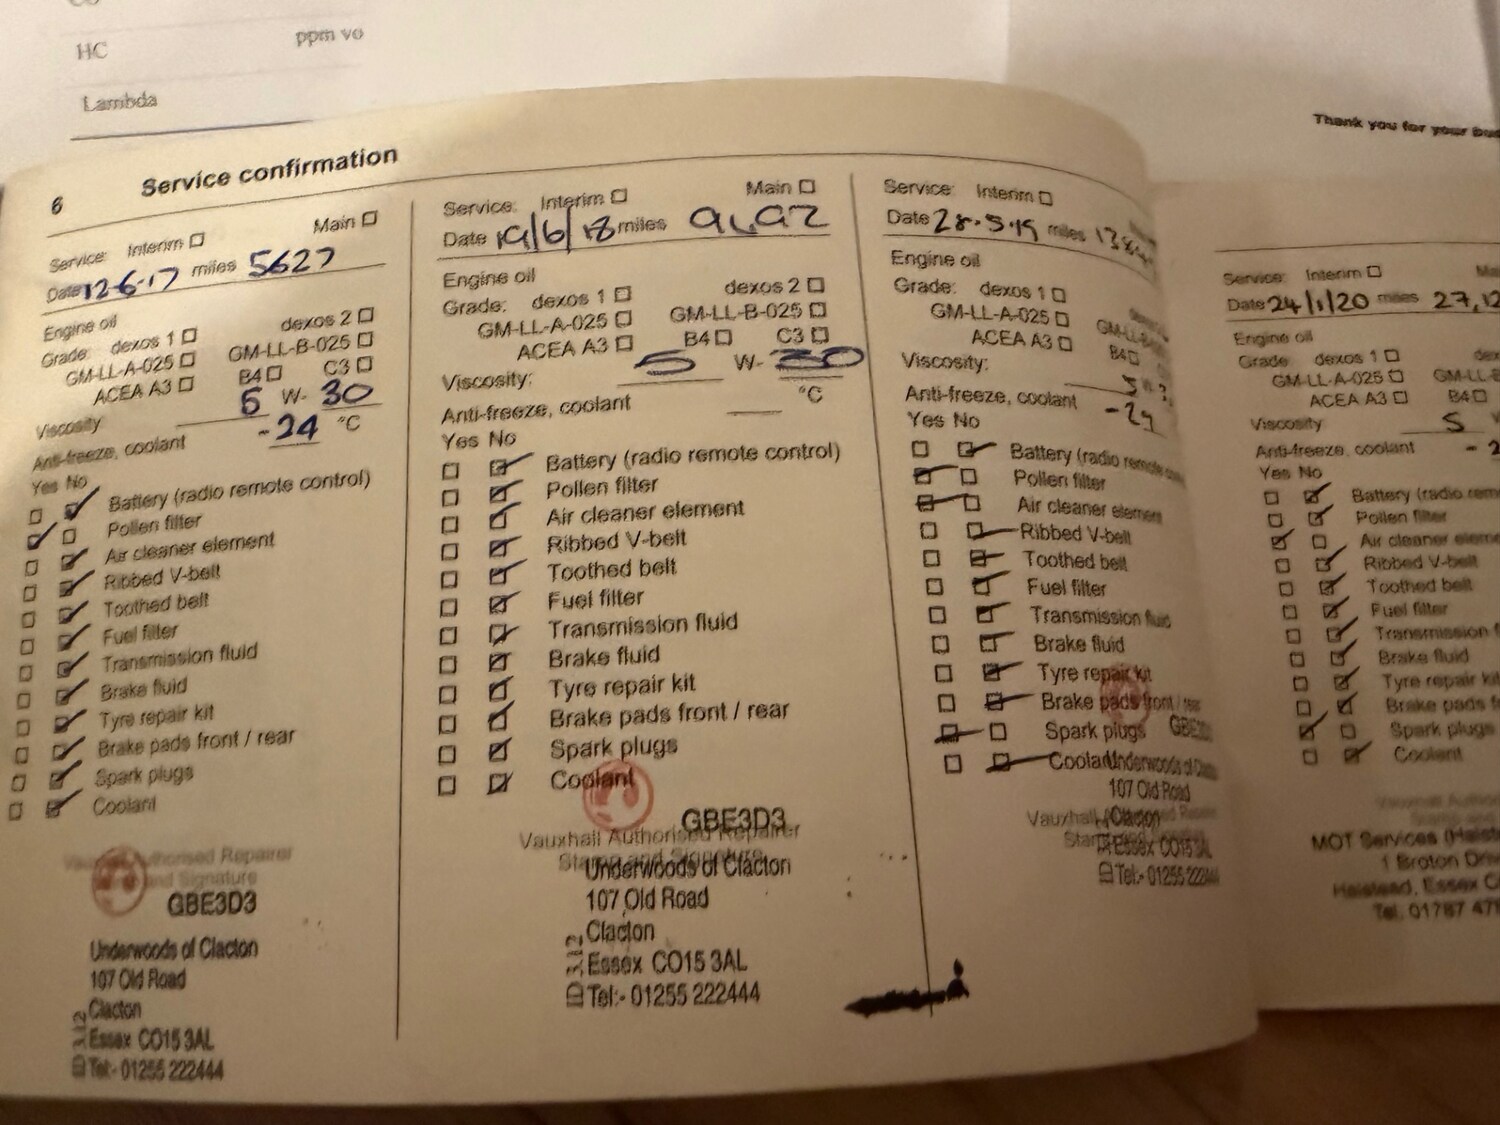 HC ppm vo
Lambda
Thank you for your bus
6 Service confirmation
Service: Interim Main
Date 12-6-17 miles 5627
Engine oil
Grade: dexos 1 dexos 2
GM-LL-A-025 GM-LL-B-025
ACEA A3 B4 C3
Viscosity 5 W- 30
Anti-freeze, coolant -24 °C
Yes No
Battery (radio remote control)
Pollen filter
Air cleaner element
Ribbed V-belt
Toothed belt
Fuel filter
Transmission fluid
Brake fluid
Tyre repair kit
Brake pads front / rear
Spark plugs
Coolant
Vauxhall Authorised Repairer
and Signature
GBE3D3
Underwoods of Clacton
107 Old Road
Clacton
Essex CO15 3AL
Tel:- 01255 222444
Service: Interim Main
Date 19/6/18 miles
Engine oil
Grade: dexos 1 dexos 2
GM-LL-A-025 GM-LL-B-025
ACEA A3 B4 C3
Viscosity: 5 W- 30
Anti-freeze, coolant °C
Yes No
Battery (radio remote control)
Pollen filter
Air cleaner element
Ribbed V-belt
Toothed belt
Fuel filter
Transmission fluid
Brake fluid
Tyre repair kit
Brake pads front / rear
Spark plugs
Coolant
GBE3D3
Vauxhall Authorised Repairer
Stamp and Signature
Underwoods of Clacton
107 Old Road
Clacton
Essex CO15 3AL
Tel:- 01255 222444
Service: Interim
Date 28.5.19 miles
Engine oil
Grade: dexos 1
GM-LL-A-025 GM-LL-B
ACEA A3 B4
Viscosity: 5 W
Anti-freeze, coolant -24
Yes No
Battery (radio remote
Pollen filter
Air cleaner element
Ribbed V-belt
Toothed belt
Fuel filter
Transmission fluid
Brake fluid
Tyre repair kit
Brake pads front / rear
Spark plugs GBE3D
Coolant
Underwoods of Clacton
107 Old Road
Vauxhall
Clacton
Essex CO15 3AL
Tel:- 01255 222444
Service: Interim Ma
Date 24/1/20 miles 27,12
Engine oil
Grade: dexos 1 dex
GM-LL-A-025 GM-LL-B
ACEA A3 B4
Viscosity 5
Anti-freeze, coolant -2
Yes No
Battery (radio rem
Pollen filter
Air cleaner eleme
Ribbed V-belt
Toothed belt
Fuel filter
Transmission f
Brake fluid
Tyre repair kit
Brake pads f
Spark plugs
Coolant
MOT Services (Halst
1 Broton Driv
Halstead, Essex C
Tel. 01787 47